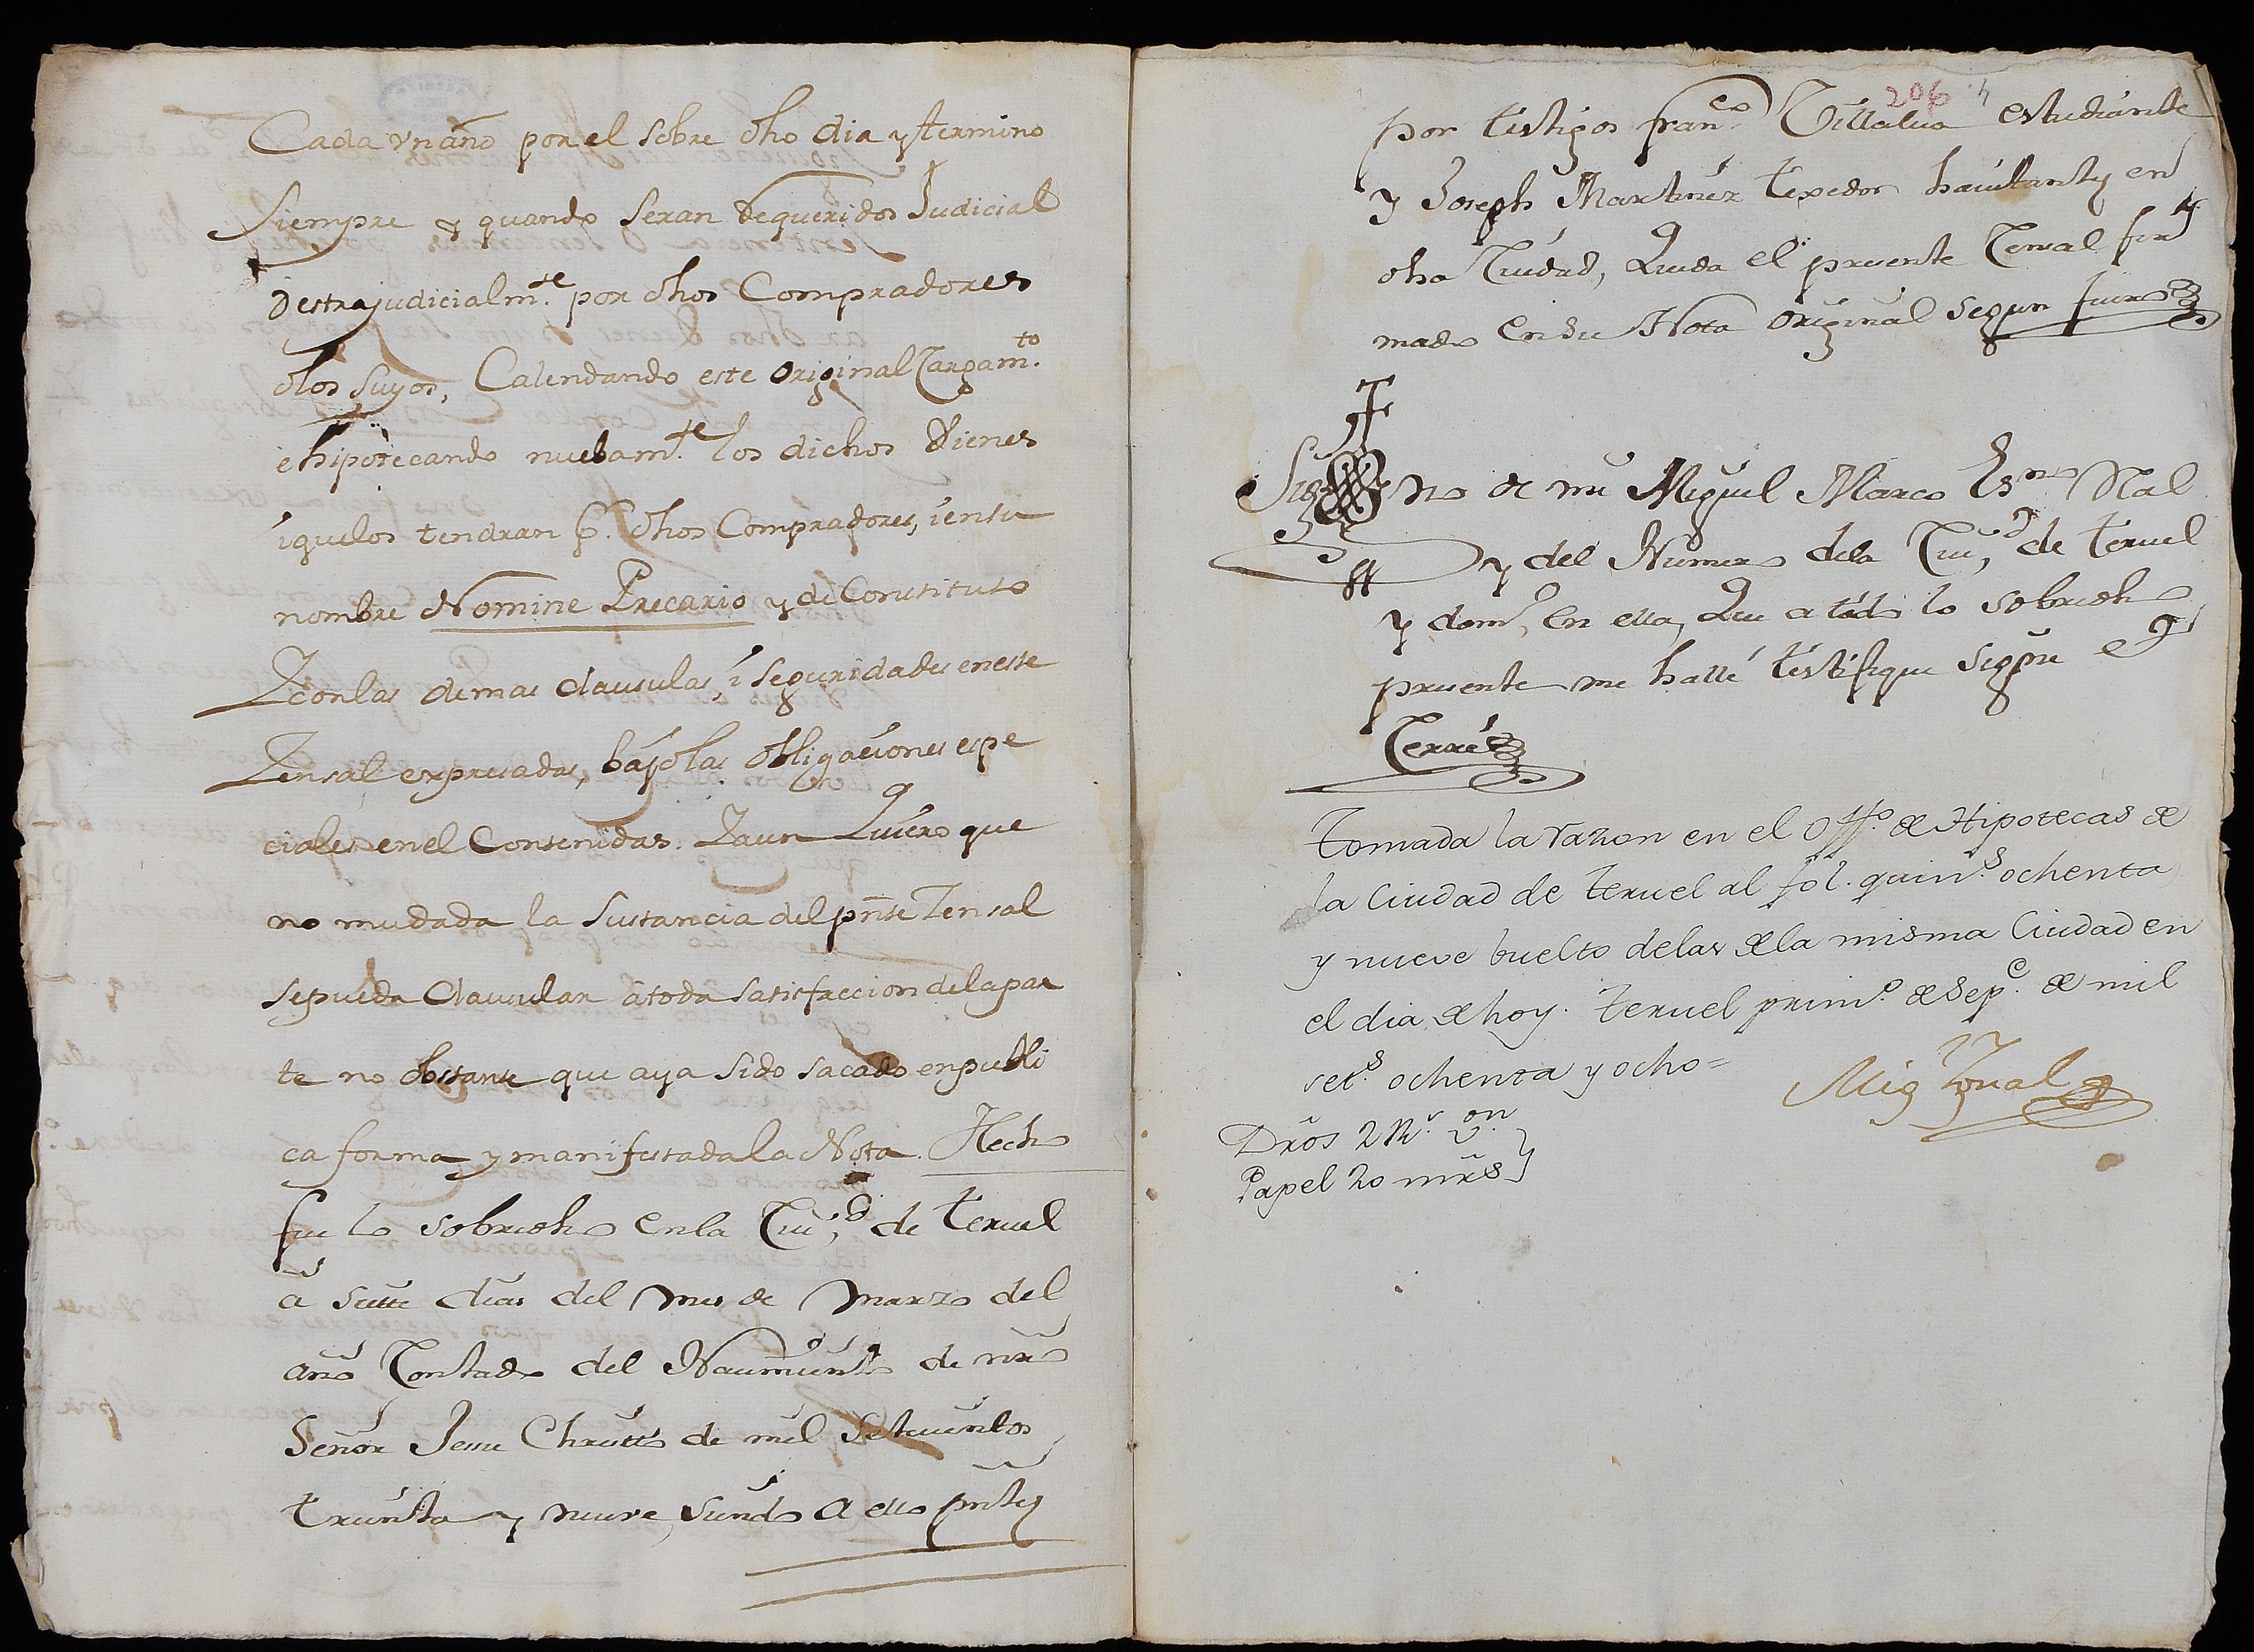 Cada vn año por el sobre dho dia y termino
Siempre y quando seran Requeridos Judicial
Oestrajudicialm.te por dhos Compradores
olos suyos, Calendando este original Cargam.to
ehipotecando nuebam.te los dichos Bienes
iquelos tendran p.r dhos Compradores, i ensu
nombre Nomine Precario y de Constituto
Zconlas demas clausulas, i seguridades eneste
Zensal expresadas, bajolas obligaciones espe
ciales enel Contenidas. Zaun Quiero que
no mudada la sustancia del pñte Zensal
sepueda Clausular àtoda satisfaccion delapar
te no obstante que aya sido sacado enpubli
ca forma y manifestada la Nota. Hecho
fue lo sobredho en la Ciu.d de teruel
à siete dias del mes de Marzo del
año Contado del Nacimiento de nro
Señor Jesu Christo de mil setecientos
treinta y nueve, siendo a ello pñtes
206 4
por testigos fran.co Villalua estudiante
y Joseph Martinez texedor hauitantes en
dha Ciudad, Queda el presente Censal fir
mado en su Nota original segun fuero
Sig no de mi Miguel Marco Es.no Rl
y del Numero dela Ciu.d de teruel
y dom.do en ella, Que a todo lo sobredho
presente me hallé testifique signe e
Cerré
tomada la razon en el Off.o de Hipotecas de
la Ciudad de teruel al fol. quin.s ochenta
y nueve buelto delas de la misma Ciudad en
el dia de hoy. teruel prim.o de Sep.e de mil
set.s ochenta y ocho =
Mig
Dr̃os 2 R.s v.on
Papel 20 mrs̃